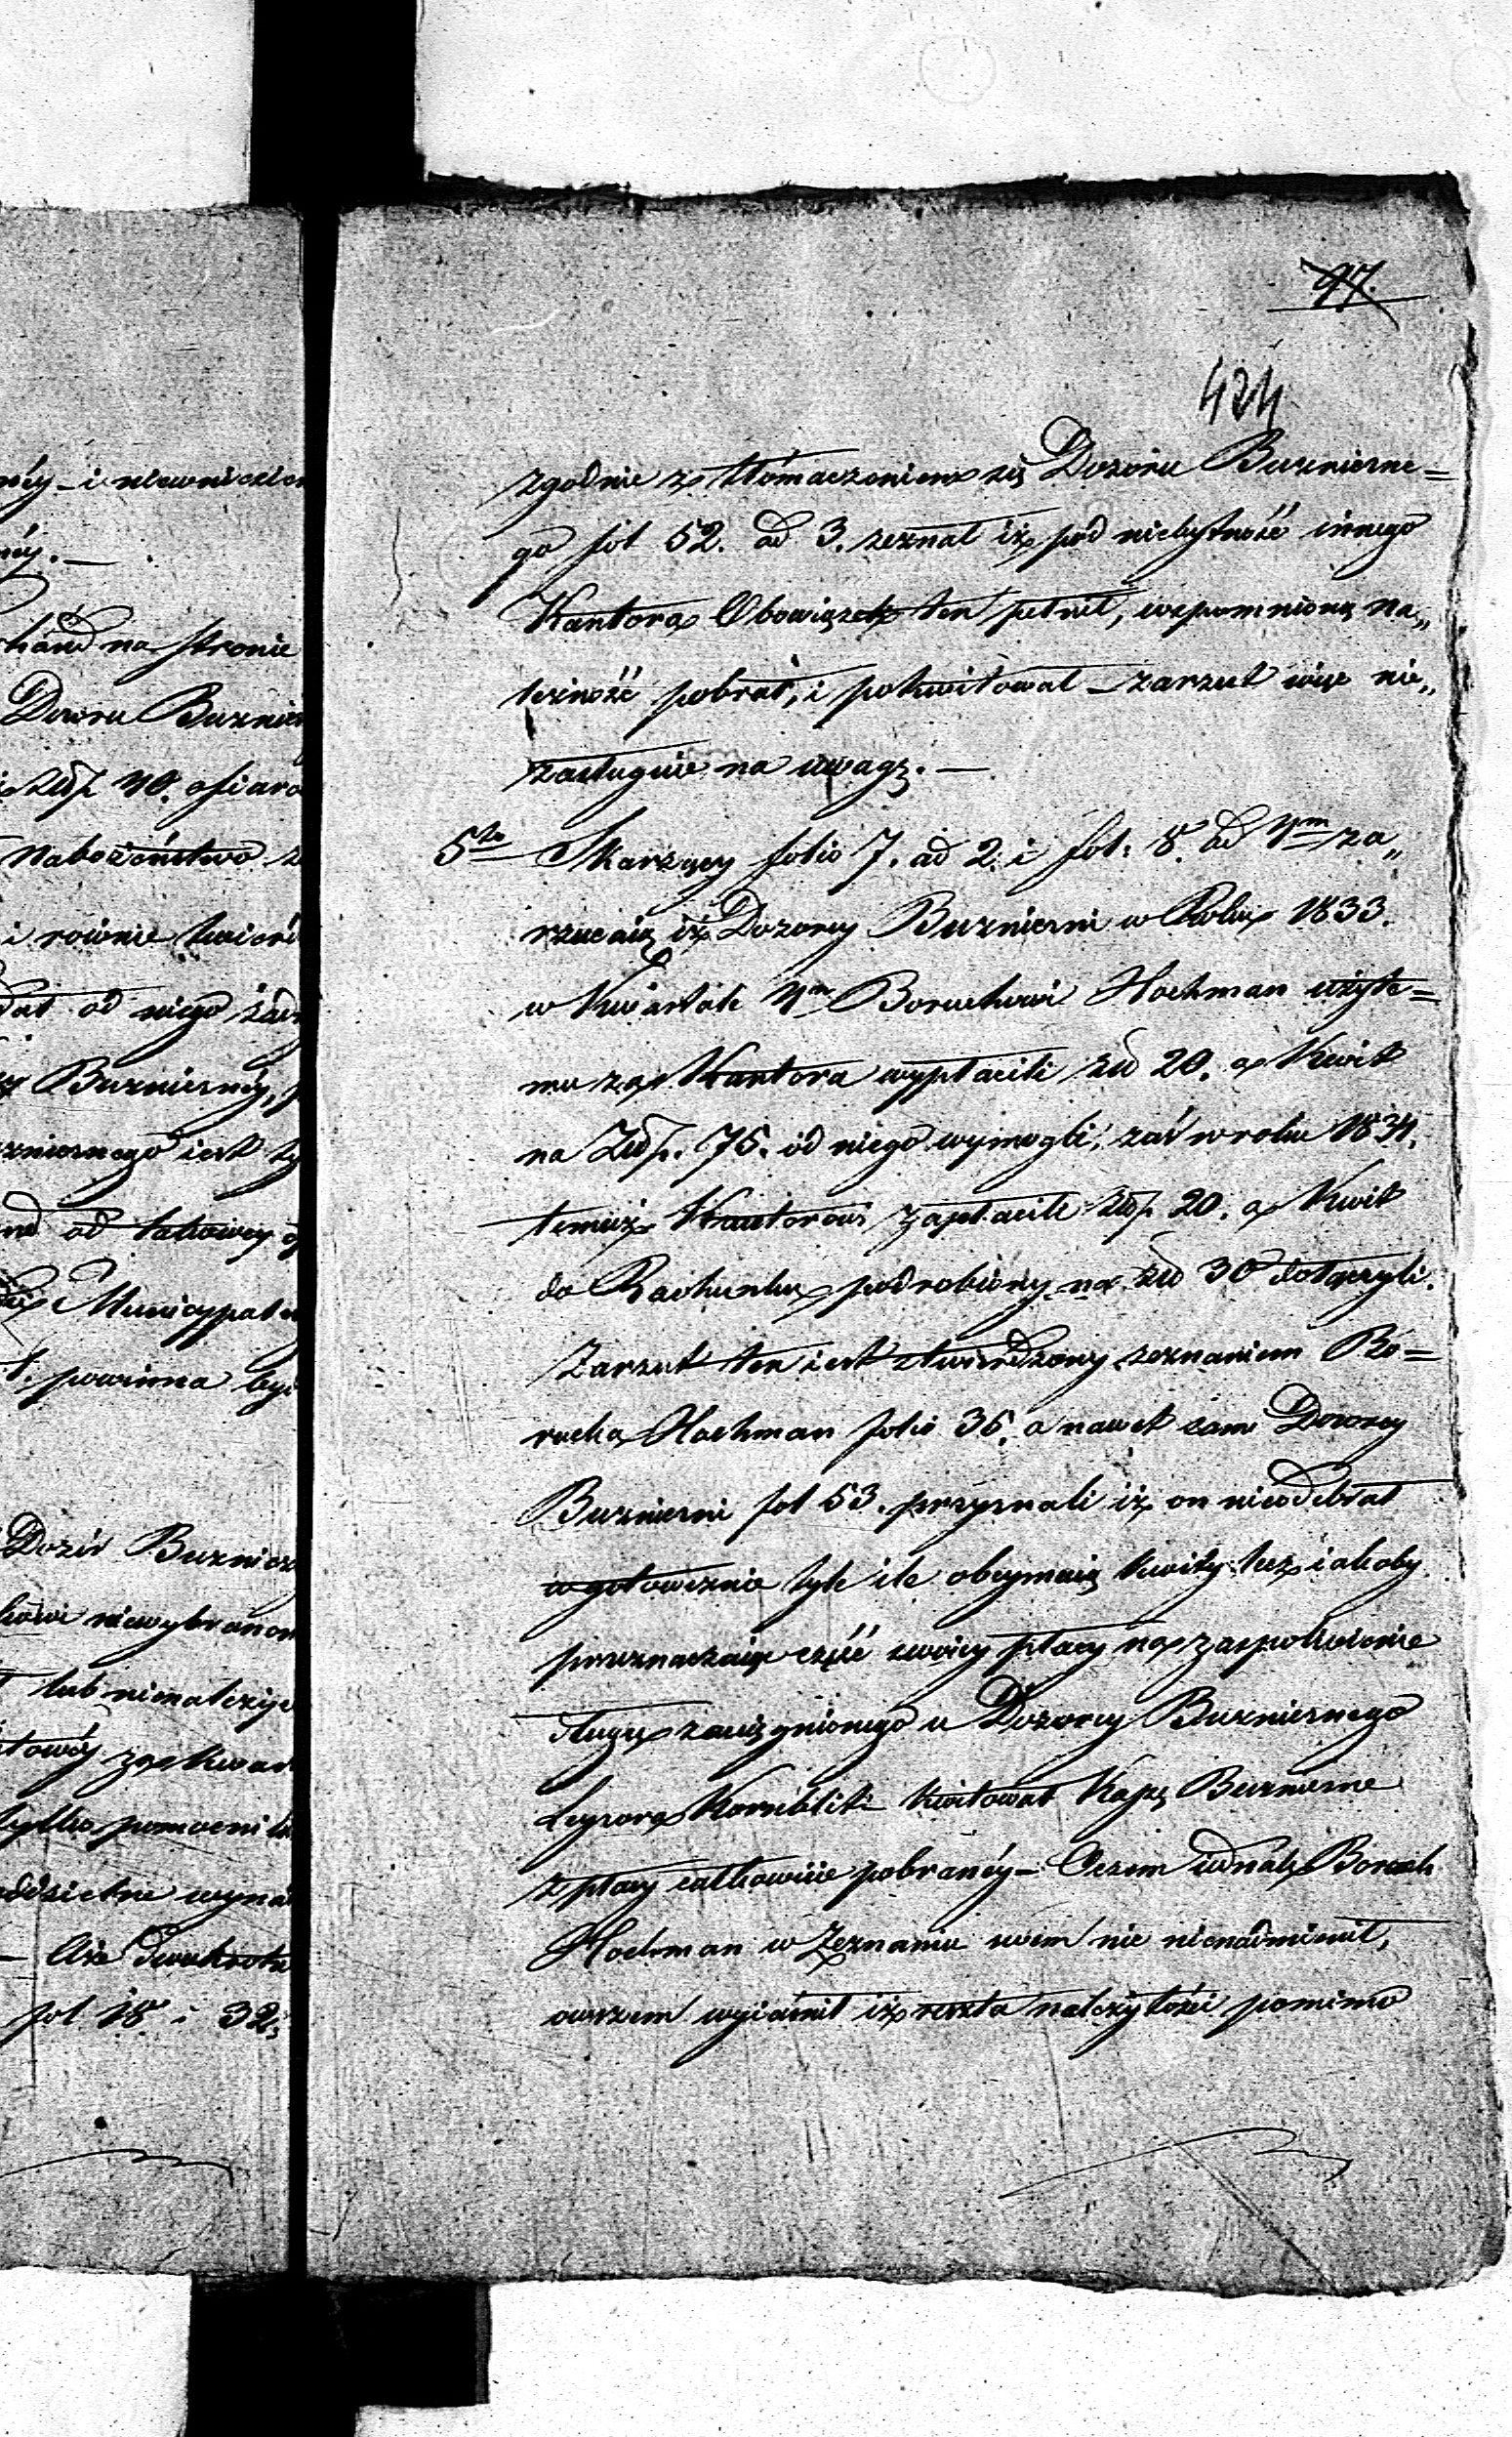 97.
424
zgodnie z tłómaczeniem się Dozoru Bużniczne=
go fol 52. ad 3. zeznał iż pod niebytność innego
Kantora Obowiązek ten pełnił, wspomnioną na„
leżność pobrał, i pokwitował – zarzut więc nie„
zasługuie na uwagę. —
5to Skarżący folio 7. ad 2. i fol. 8. ad 4m za„
rzucaią iż Dozorcy Bużniczni w Roku 1833.
w Kwartale 4m Boruchowi Hochman użyte=
mu za Kantora wypłacili złł 20. a Kwit
na Złłp. 75. od niego wymogli, zaś w roku 1834.
temuż Kantorowi zapłacili złłp. 20. a Kwit
do Rachunku podrobiony na złł 30 dołączyli.
Zarzut ten iest stwierdzony zeznaniem Bo=
rucha Hochman folio 36. a nawet sami Dozorcy
Bużniczni fol 53. przyznali iż on nieodebrał
w gotowiznie tyle ile obeymuią kwity lecz iakoby
przeznaczaiąc część swoiey płacy na zaspokoienie
długu zaciągnionego u Dozorcy Bużnicznego
Leyzora Kornblit kwitował Kassę Bużniczne
z płacy całkowicie pobranéy – Oczem iednak Boruch
Hochman w Zeznaniu swoim nic nienadmienił,
owszem wyiaśnił iż reszta należytości pomimo
néy – i
néy. —
na stronie
Dozoru
złłp 40. ofiaro
Nabożeństwo
i równie
od niego
Bużniczney,
iest
od
Municypal
powinna
Dozór
lub
tylko
wyna
fol 18 i 32